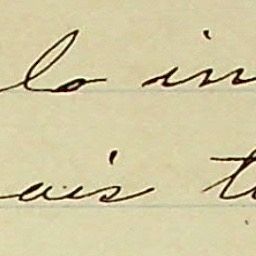 lo in
ais t